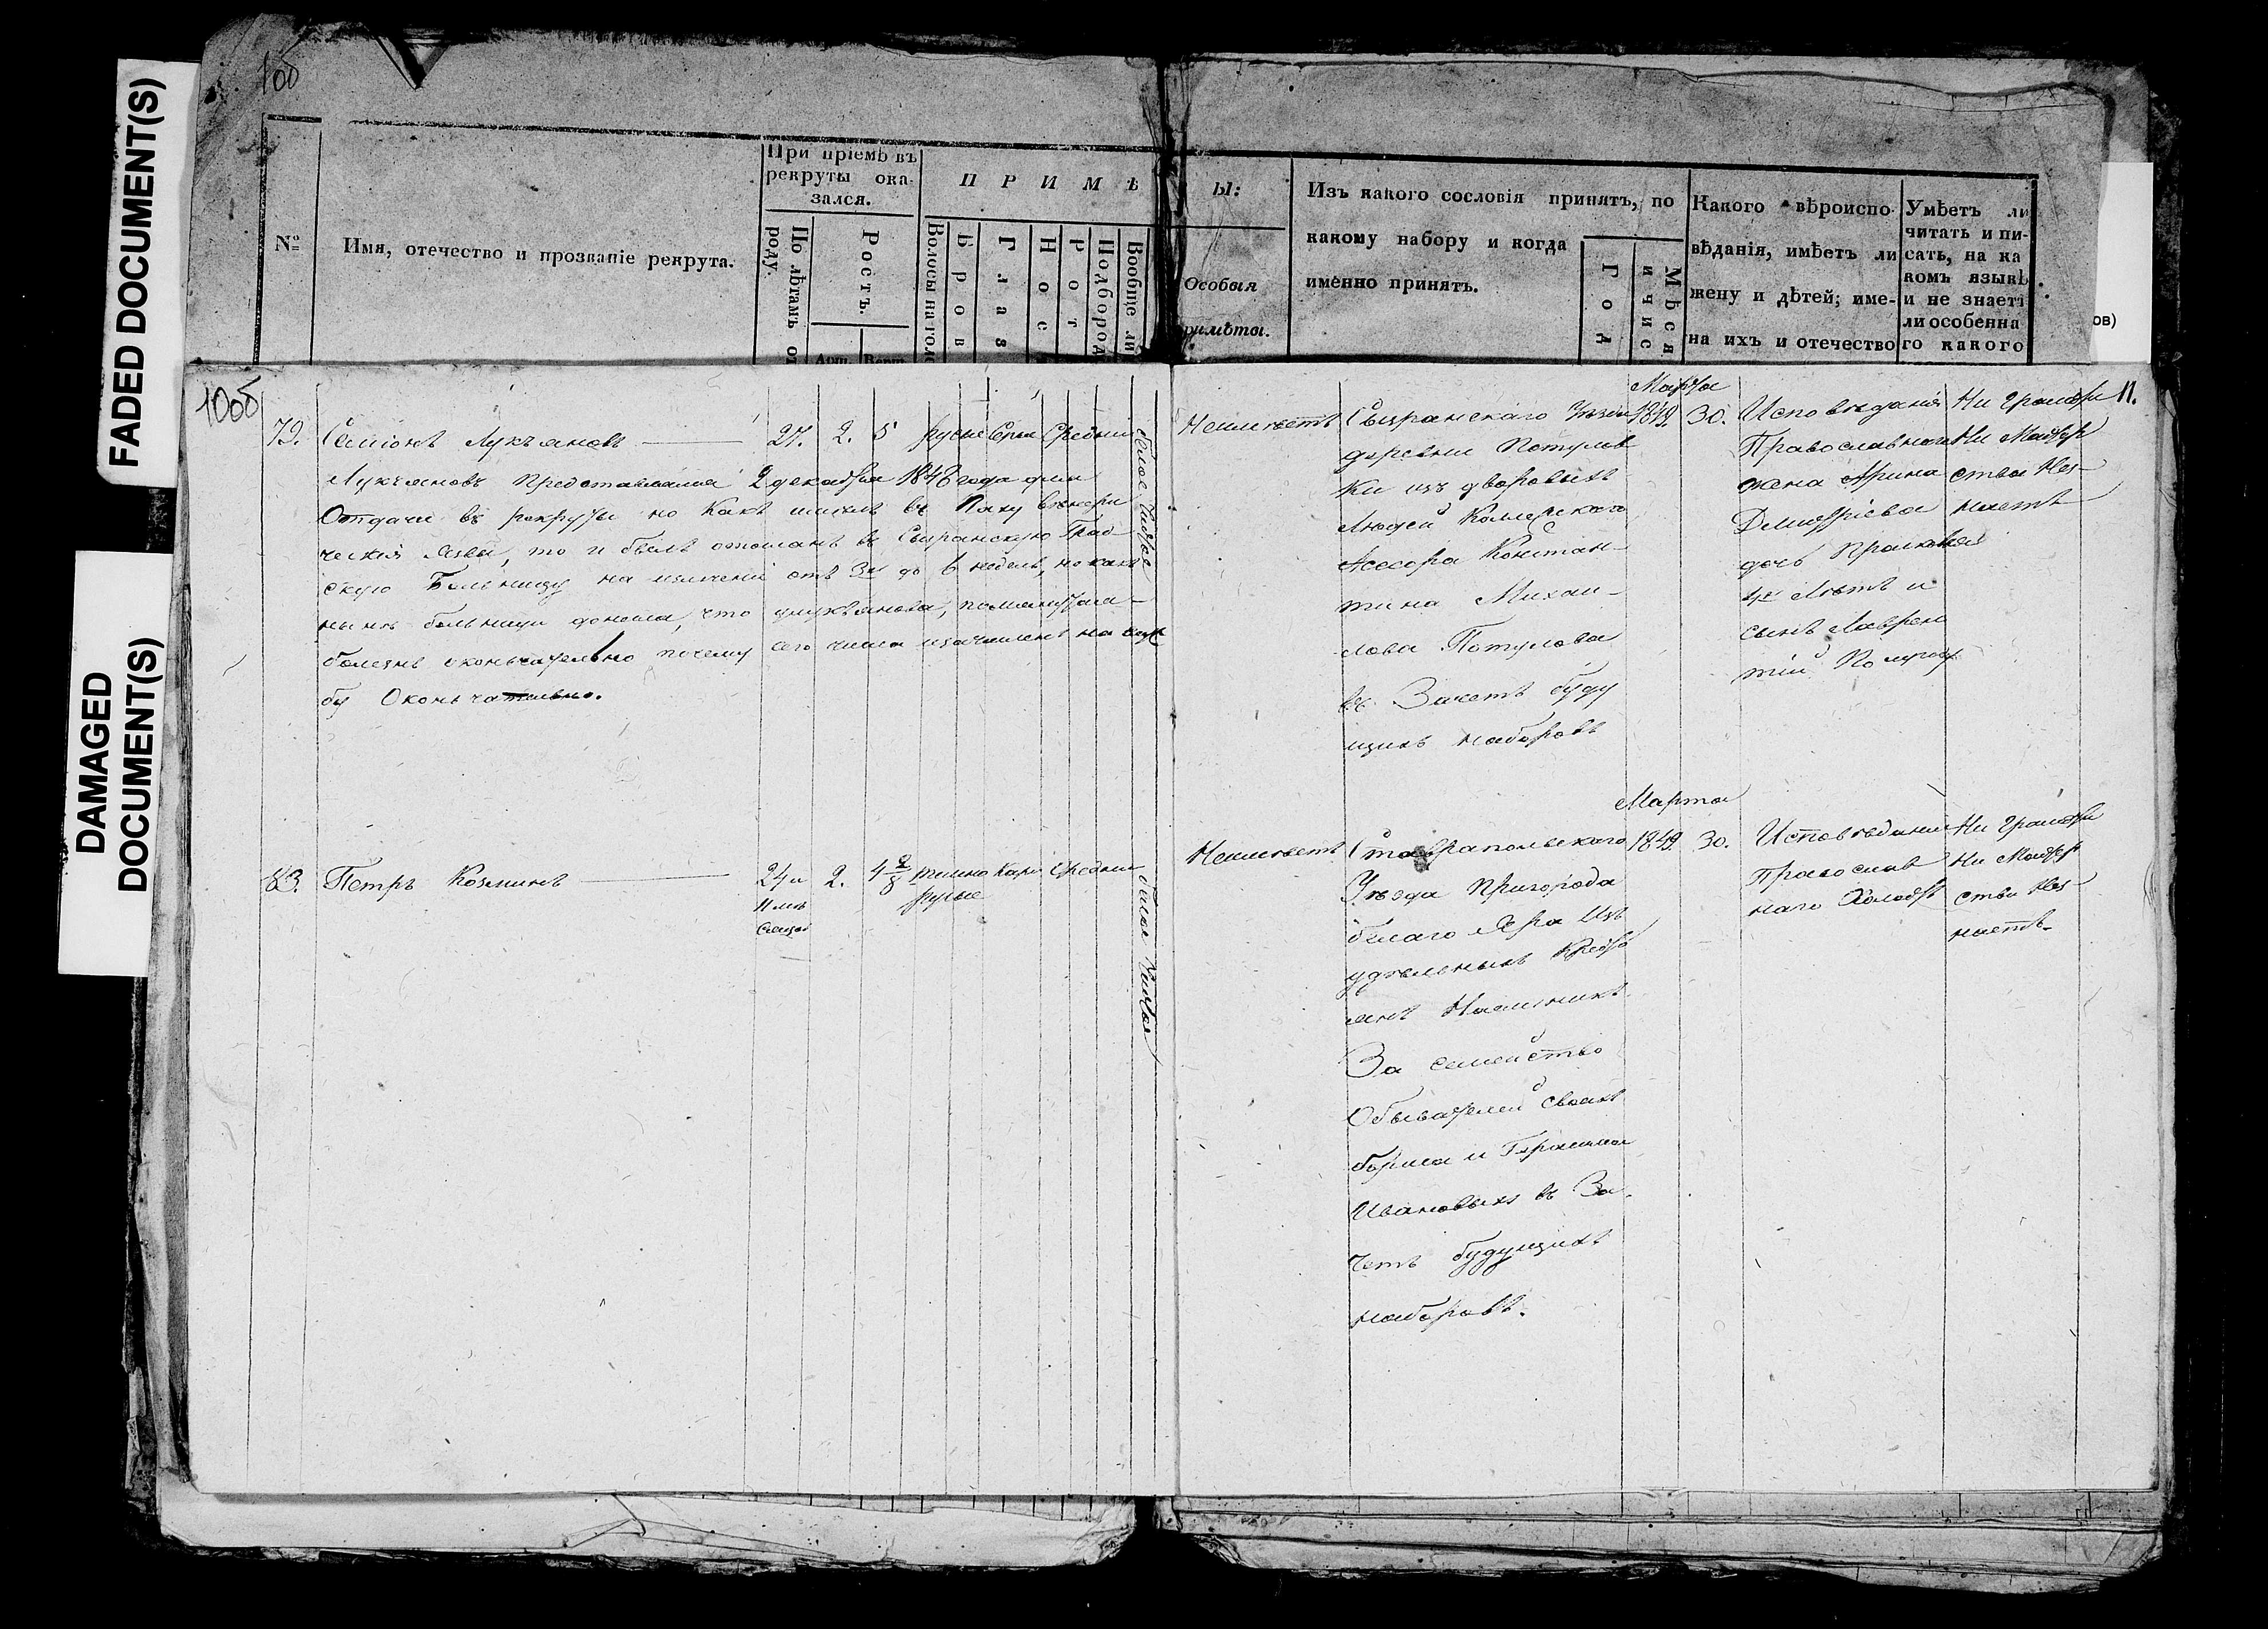 FADED DOCUMENT(S)
DAMAGED
DOCUMENT(S)
10об
№
Имя, отечество и прозваніе рекрута.
При пріемѣ въ
рекруты ока-
зался.
По лѣтамъ от
роду.
Ростъ.
Арш.
Верш.
ПРИМѢ
Волосы на голо
Бров
Глаз
Нос
Рот
Подбород
Вообще ли
ы:
Особыя
римѣты.
Изъ какого сословія принятъ, по
какому набору и когда
именно принятъ.
Год
Мѣся
и чис
Какого вѣроиспо-
вѣданія, имѣетъ ли
жену и дѣтей; име-
на ихъ и отечество
Умѣетъ ли
читать и пи-
сать, на ка
комъ языкѣ
и не знаетъ
ли особенна
го какого
ов)
10об
11.
79. Семіонъ Лукъяновъ 27. 2. 5 русые Серы Средній
белое чистое
Лукъяновъ представляемъ 2 декабря 1848 года для
Отдачи въ рекруты но какъ имѣлъ въ Паху венери
ческія язвы, то и былъ отосланъ въ Сызранскую Град
скую Больницу на излеченіе отъ 3х до 6 недель, но какъ
нынѣ больница донесла, что улукьянова, помянутая
болезнь окончательно почему сего числа и зачисленъ на служ
бу Окончательно.
Неимеетъ
Сызранскаго Уезда
деревни Потулов
ки изъ дворовыхъ
Людей Колежскаго
Асесора Констан-
тина Михаи-
лова Потулова
въ Зачетъ буду
щихъ наборовъ
Марта
1849. 30.
Исповеданія
Православнаго
жена Арина
Дмитріева
дочь Прасковья
4х Летъ и
сынъ Лаврен
тий Полугод
Ни грамоты
Ни Мастер
ства Нез-
наетъ
83. Петръ Козминъ 24 и 2. 4 2/8 темно Кари Средній
11 мѣс русые
белое чистое
Неимеетъ
Ставрапольскаго
Уезда Пригорода
белаго Яра Изъ
удельныхъ Крестья
янъ Наемникъ
За семейство
Обывателей своихъ
бориса и Герасима
Ивановыхъ въ За-
четъ будущихъ
наборовъ.
Марта
1849. 30.
Исповедания
Православ
наго Холостъ
Ни грамоты
Ни Мастер
ства Нез-
наетъ